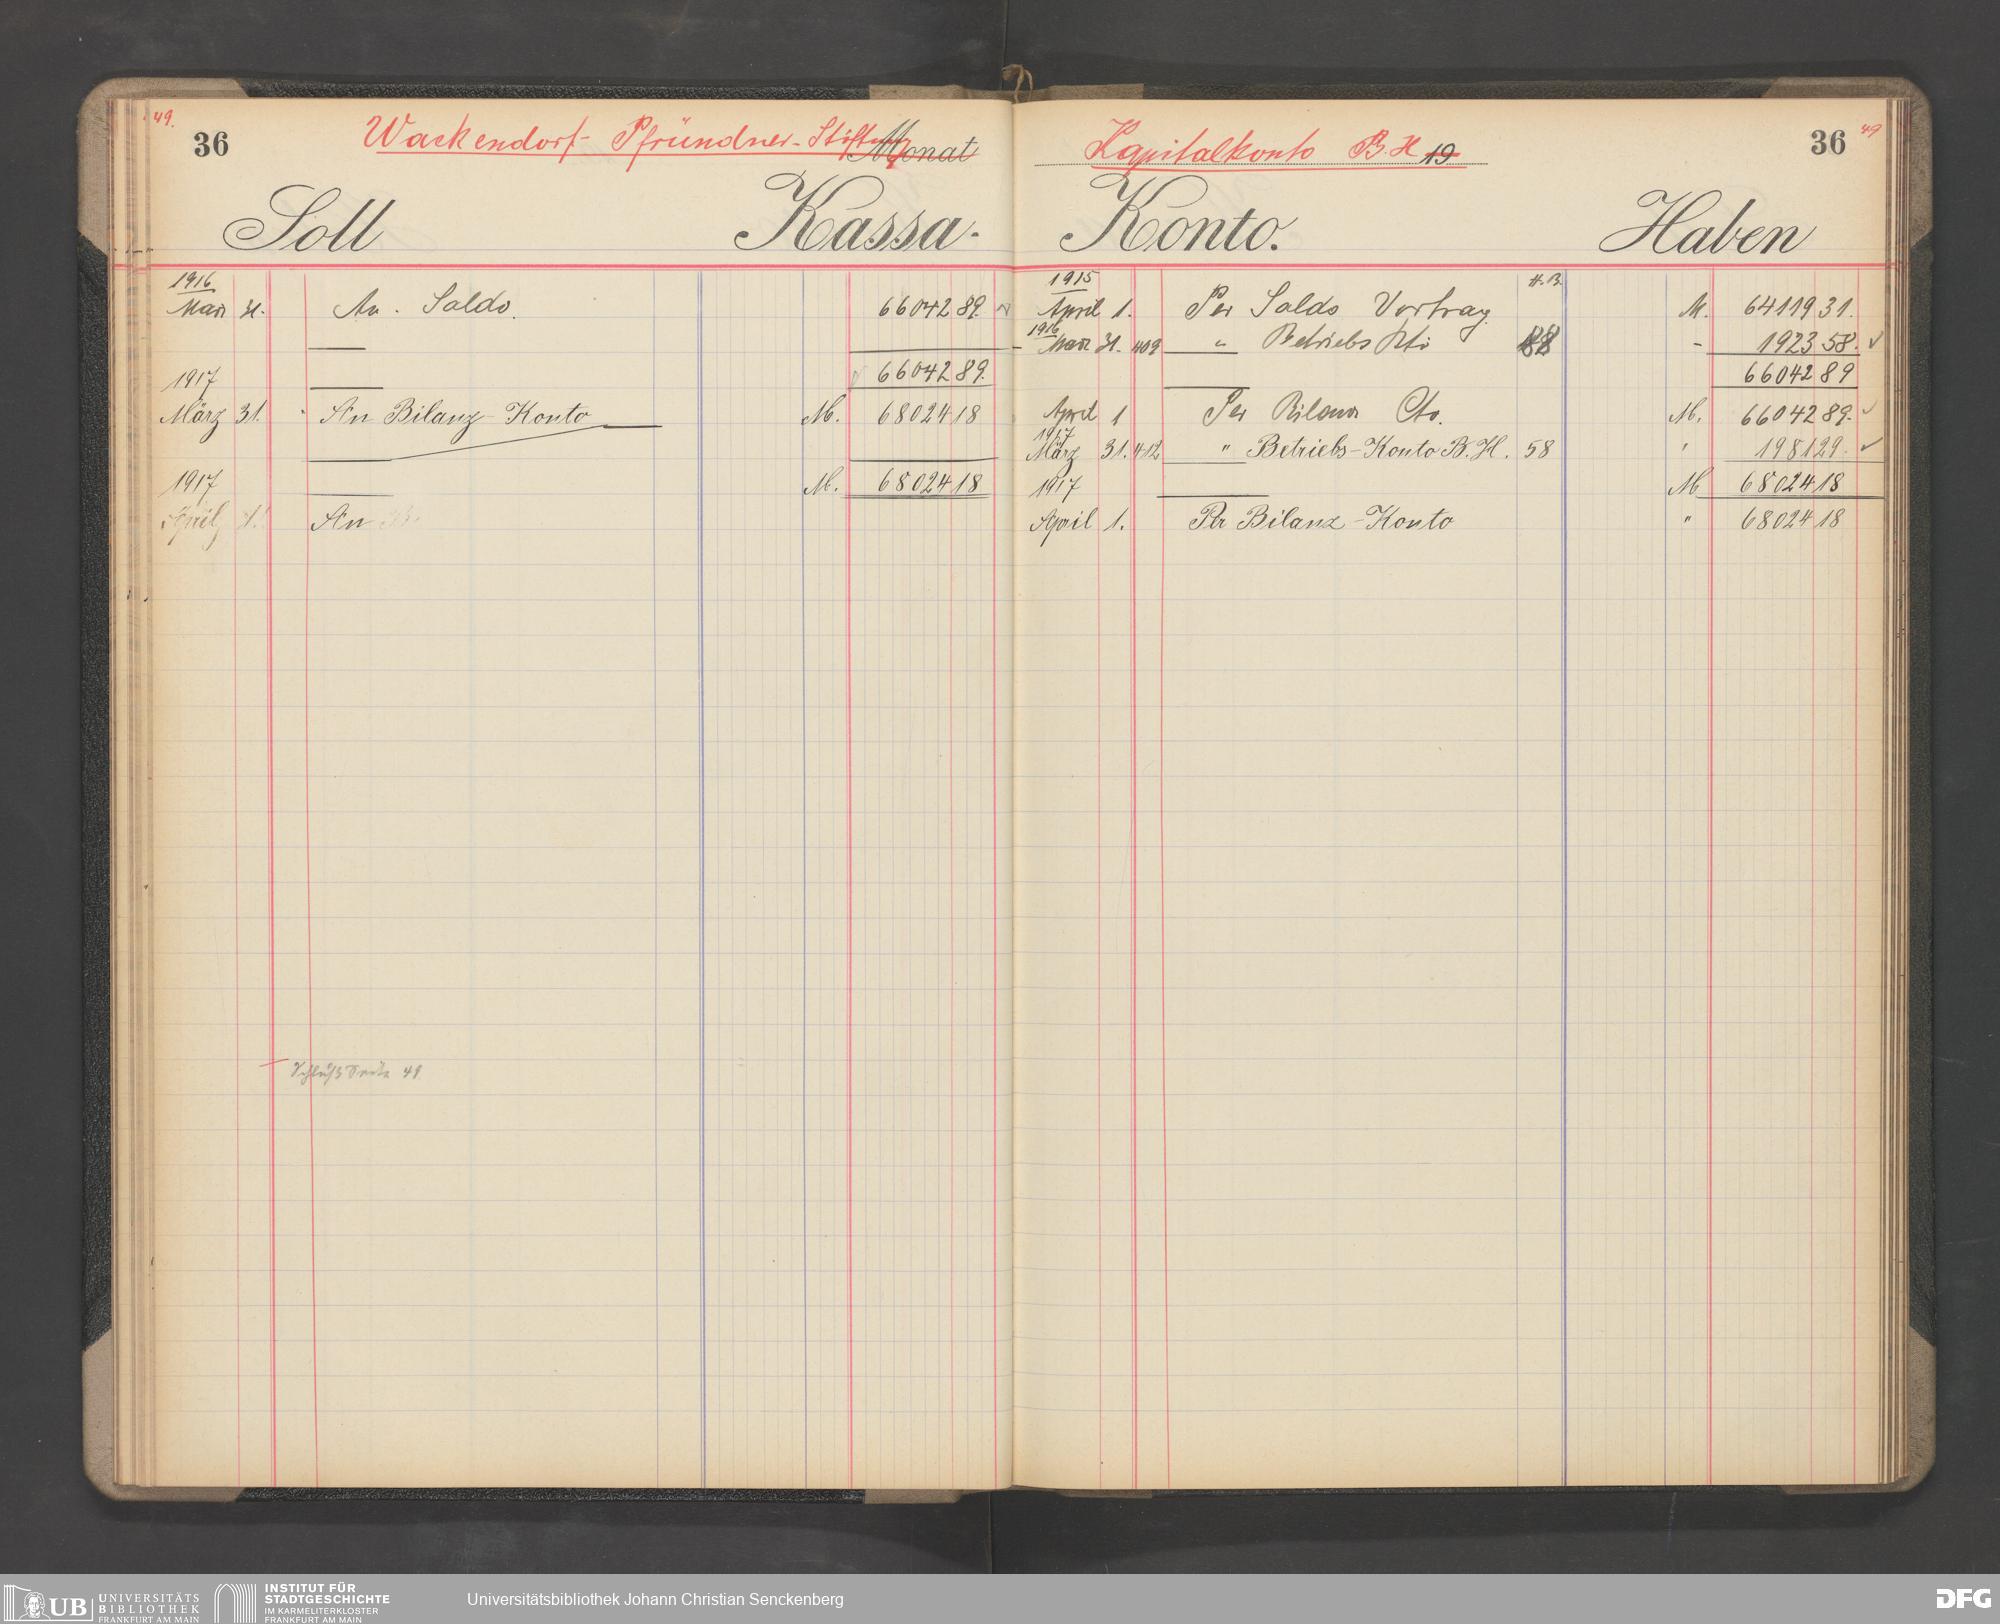 49.
36
Wackendorf-Pfründner-Stiftung
Monat
Soll
Kassa-
1916
März 31. An Saldo. 66042 89.
66042 89.
1917
März 31. An Bilanz-Konto M. 68024 18
1917 M. 68024 18
April 1. An
Schluß Seite 49
Kapitalkonto B.H 19
36
49
Konto.
Haben
1915
April 1. Per Saldo Vortrag. M. 64119 31.
1916
März 31. 409 " Betriebs Kto 88 - 1923 58.
66042 89
April 1 Per Bilanz Cto. M. 66042 89.
1917
März 31. 412 " Betriebs-Konto B.H. 58 " 1981 29.
1917 M 68024 18
April 1. Per Bilanz-Konto " 68024 18
UB UNIVERSITÄTS
BIBLIOTHEK
FRANKFURT AM MAIN
INSTITUT FÜR
STADTGESCHICHTE
IM KARMELITERKLOSTER
FRANKFURT AM MAIN
Universitätsbibliothek Johann Christian Senckenberg
DFG